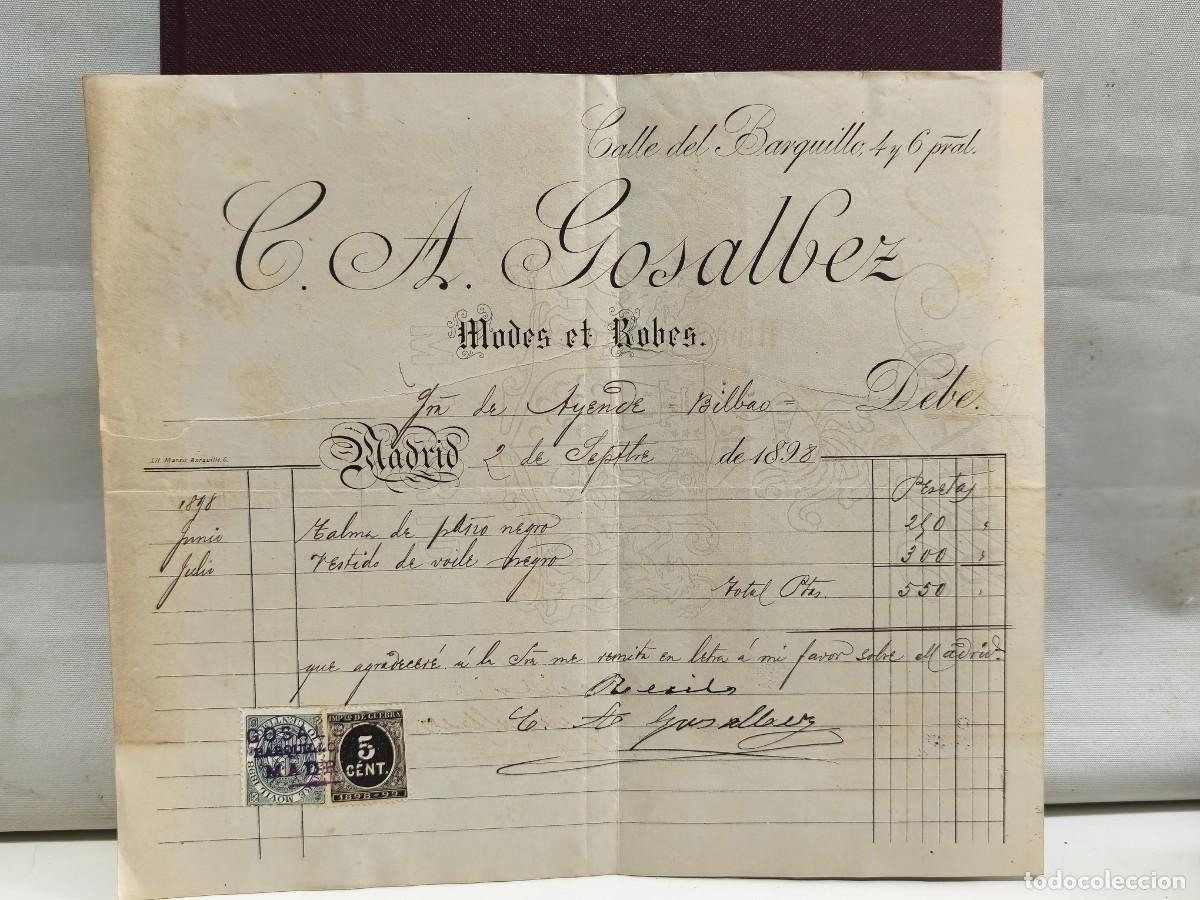 Calle del Barquillo, 4 y 6 pral.
C. A. Gosalbez
Modes et Robes.
Sra de Ayende = Bilbao = Debe.
Lit. Mateu. Barquillo, 6.
Madrid 2 de Septbre de 1898
Pesetas
1898
Junio Talma de paño negro 250 "
Julio Vestido de voile negro 300 "
Total Ptas. 550 "
que agradeceré á la Sra me remita en letra á mi favor sobre Madrid.
Recibí
C. A. Gosalbez
GOSAL
BARQUILLO
MADR
MOVIL 1898
IMPTO DE GUERRA
5
CÉNT.
1898-99
todocoleccion